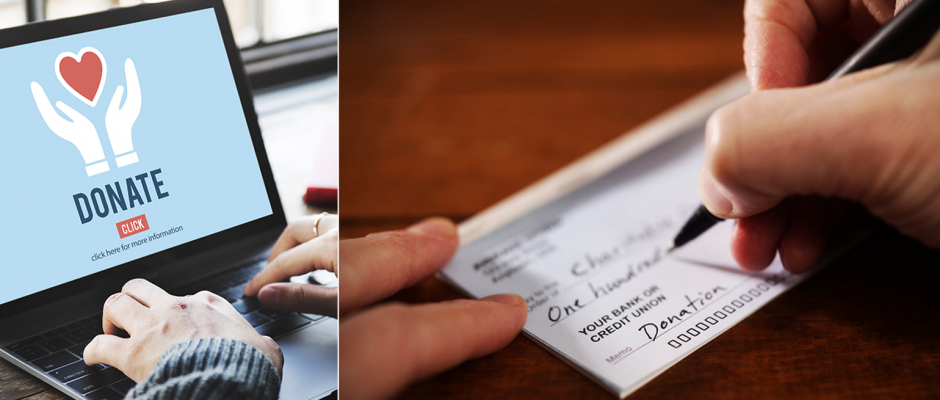 DONATE
CLICK
click here for more information
Charitable
One hundred
YOUR BANK OR
CREDIT UNION
Memo Donation